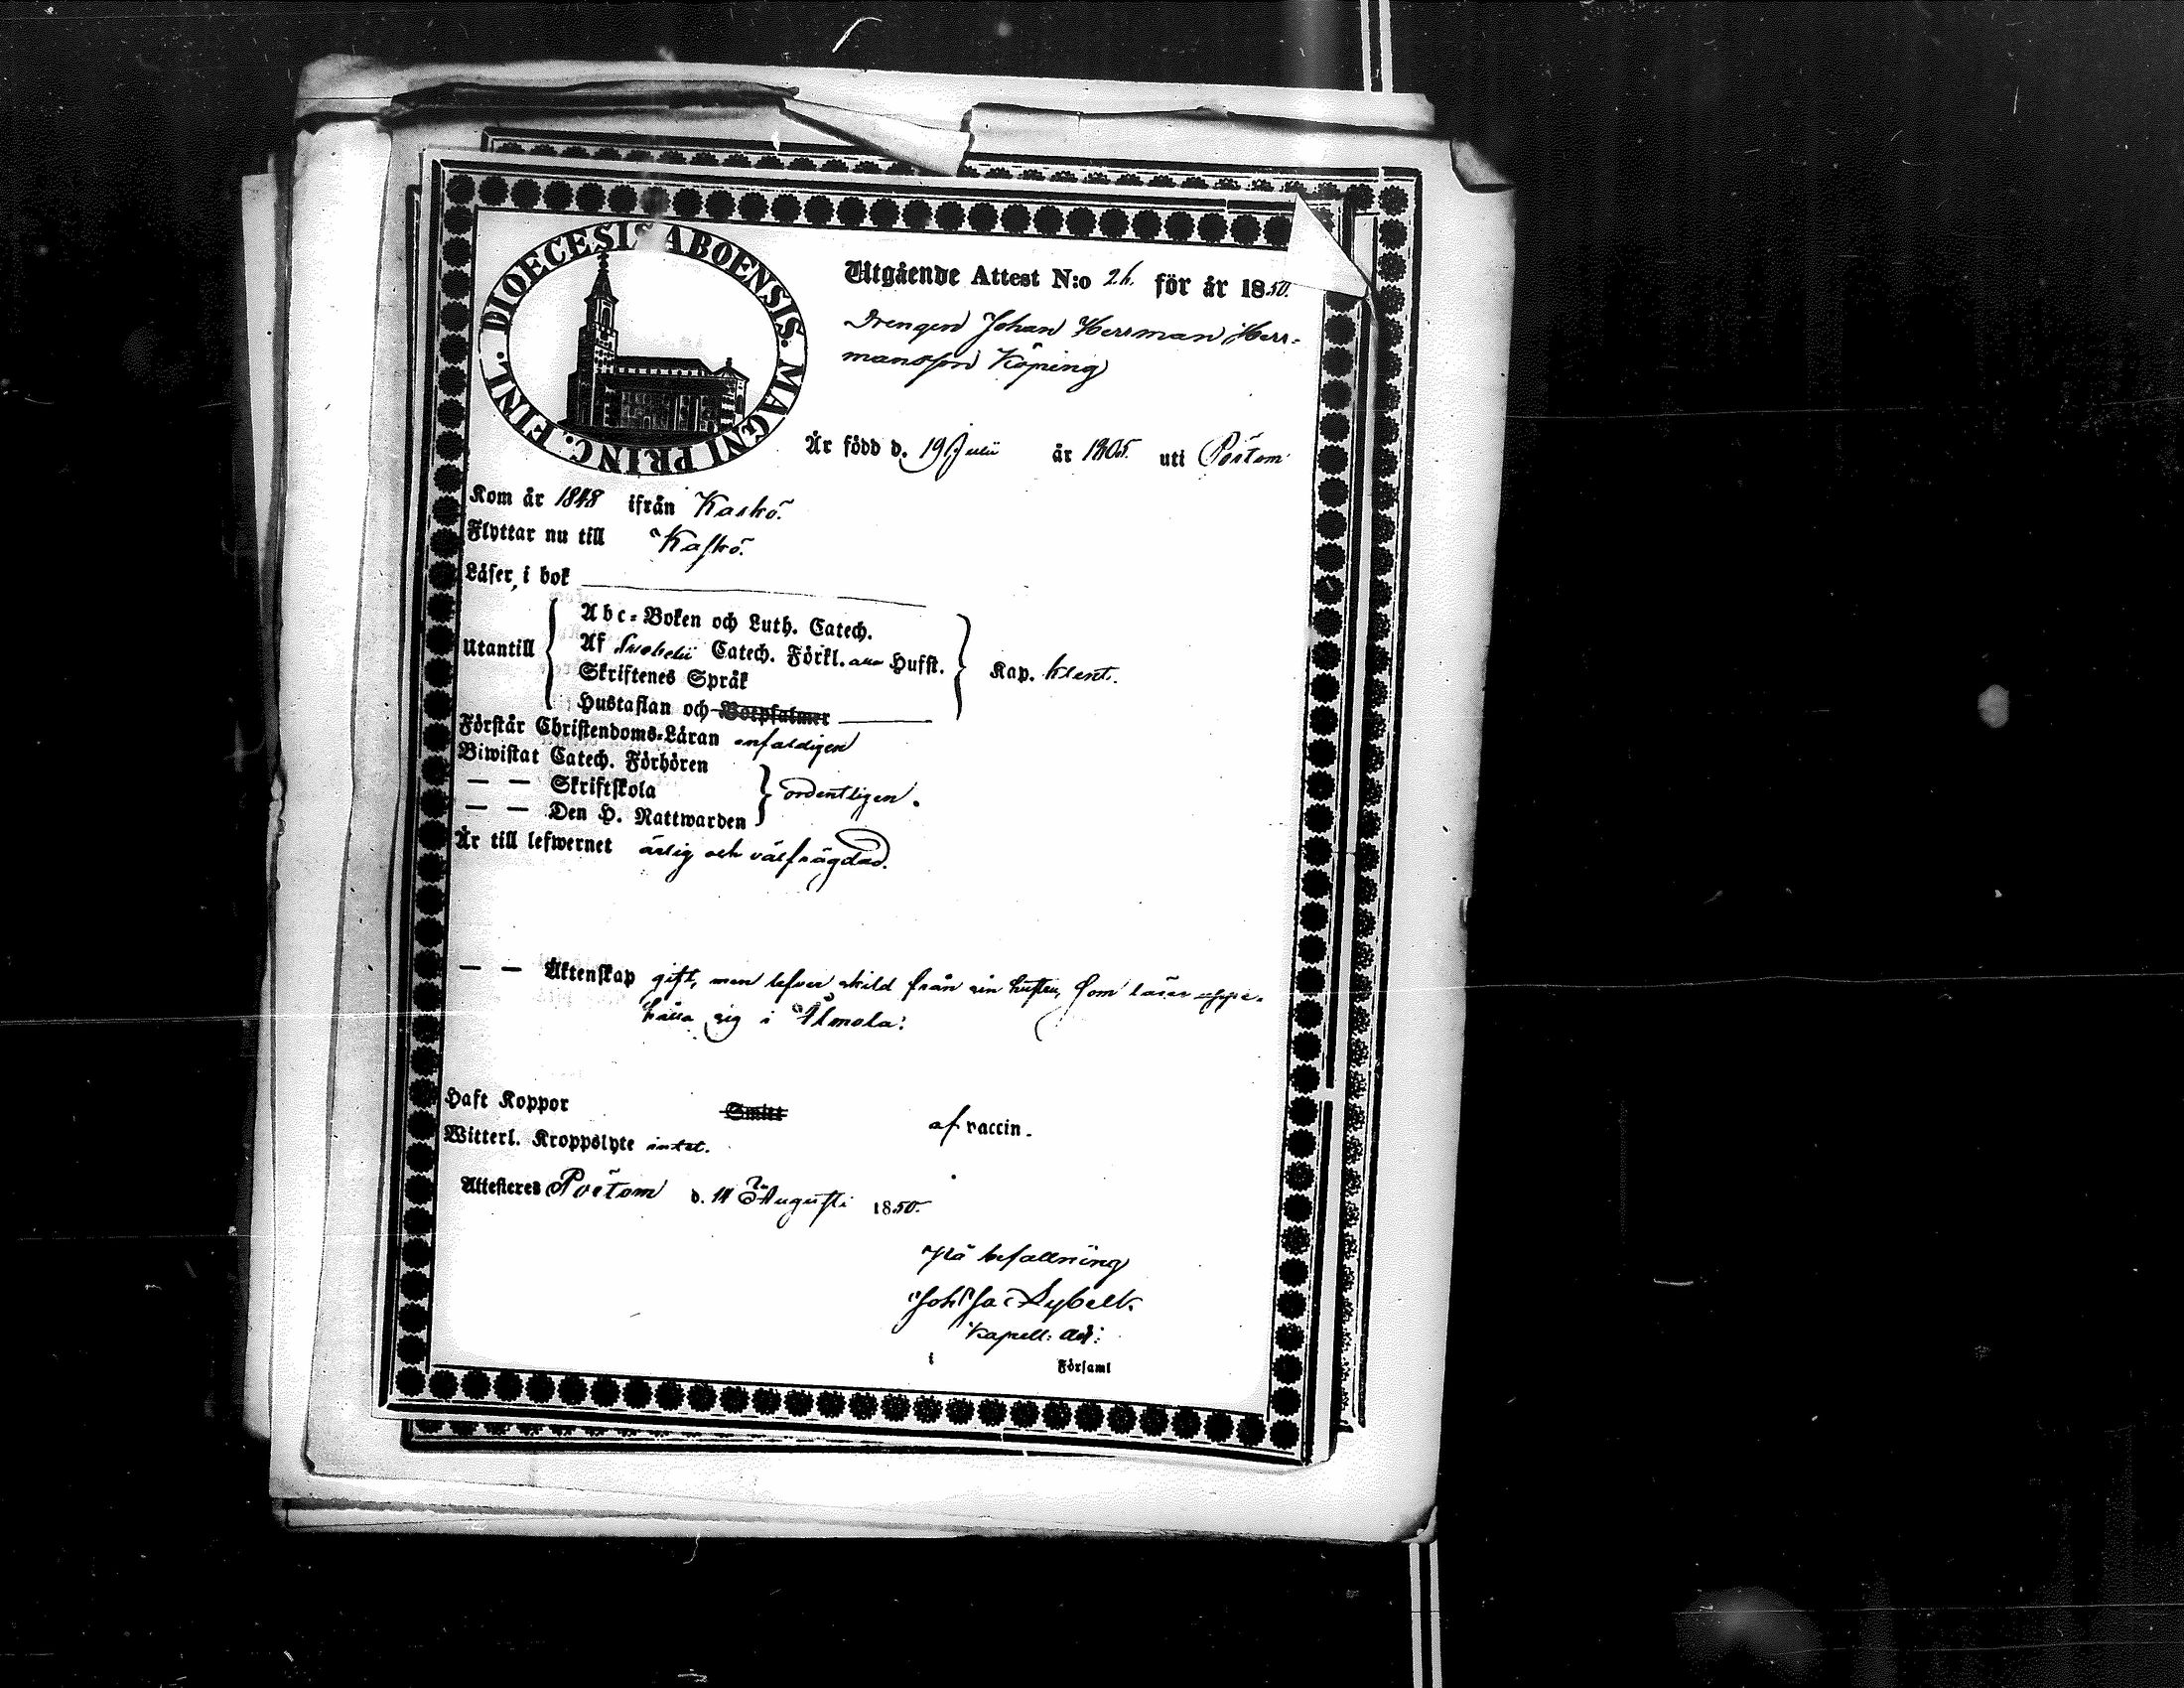 DIOECESIS ABOENSIS. MAGNI PRINC. FINL.
Utgående Attest N:o för år 1850.
Drengen Johan Herrman Herr-
mansson Köping
Är född d. 19 Julii år 1805. uti Pörtom
Kom år 1848 ifrån Kaskö.
Flyttar nu till Kaskö.
Läser, i bok
Utantill
Abc-Boken och Luth. Catech.
Af Svebelii Catech. Förkl. Husst.
Skriftenes Språk
Hustaflan och Botpsalmer
Kap. klent.
Förstår Christendoms-Läran enfaldigen
Biwistat Catech. Förhören
— — Skriftskola
— — Den H. Nattwarden
ordentligen.
Är till lefwernet ärlig och välfrägdad.
— — Äktenskap gift, men lefver skild från sin hustru, som lärer uppe-
hålla sig i Ilmola.
Haft Koppor Smitt af vaccin.
Witterl. Kroppslyte intet.
Attesteres Pörtom d. 11 Augusti 1850.
På befallning
Joh. Jac. Lybeck
Kapell: Adj:
i Församl